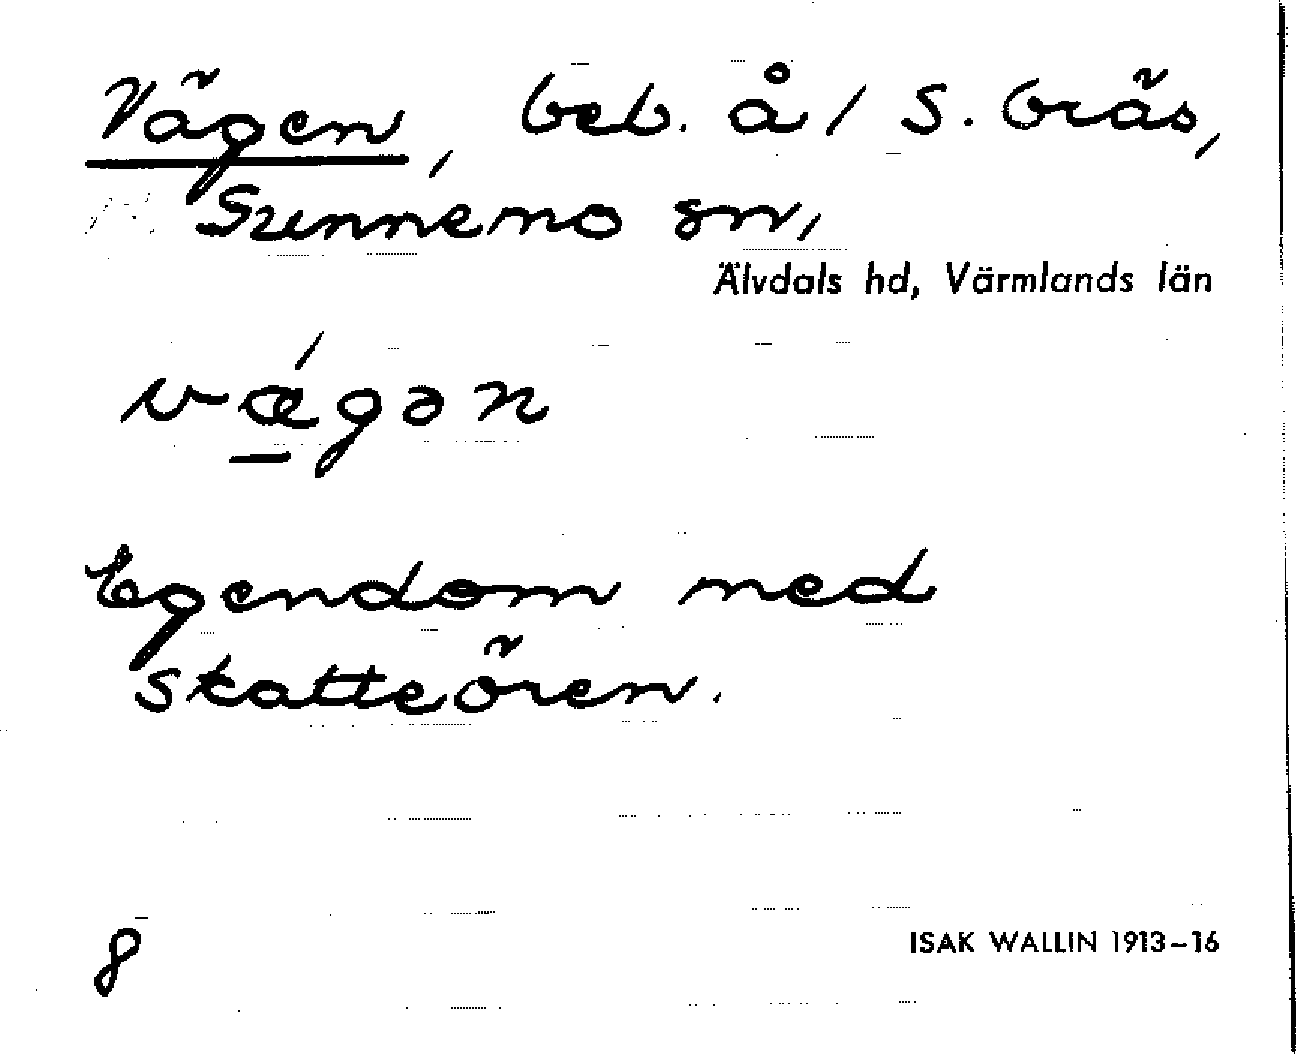 Vägen, beb. å / S. Gräs,
Sunnemo sn,
Älvdals hd, Värmlands län
vǽgən
Egendom med
skatteören.
8
ISAK WALLIN 1913–16